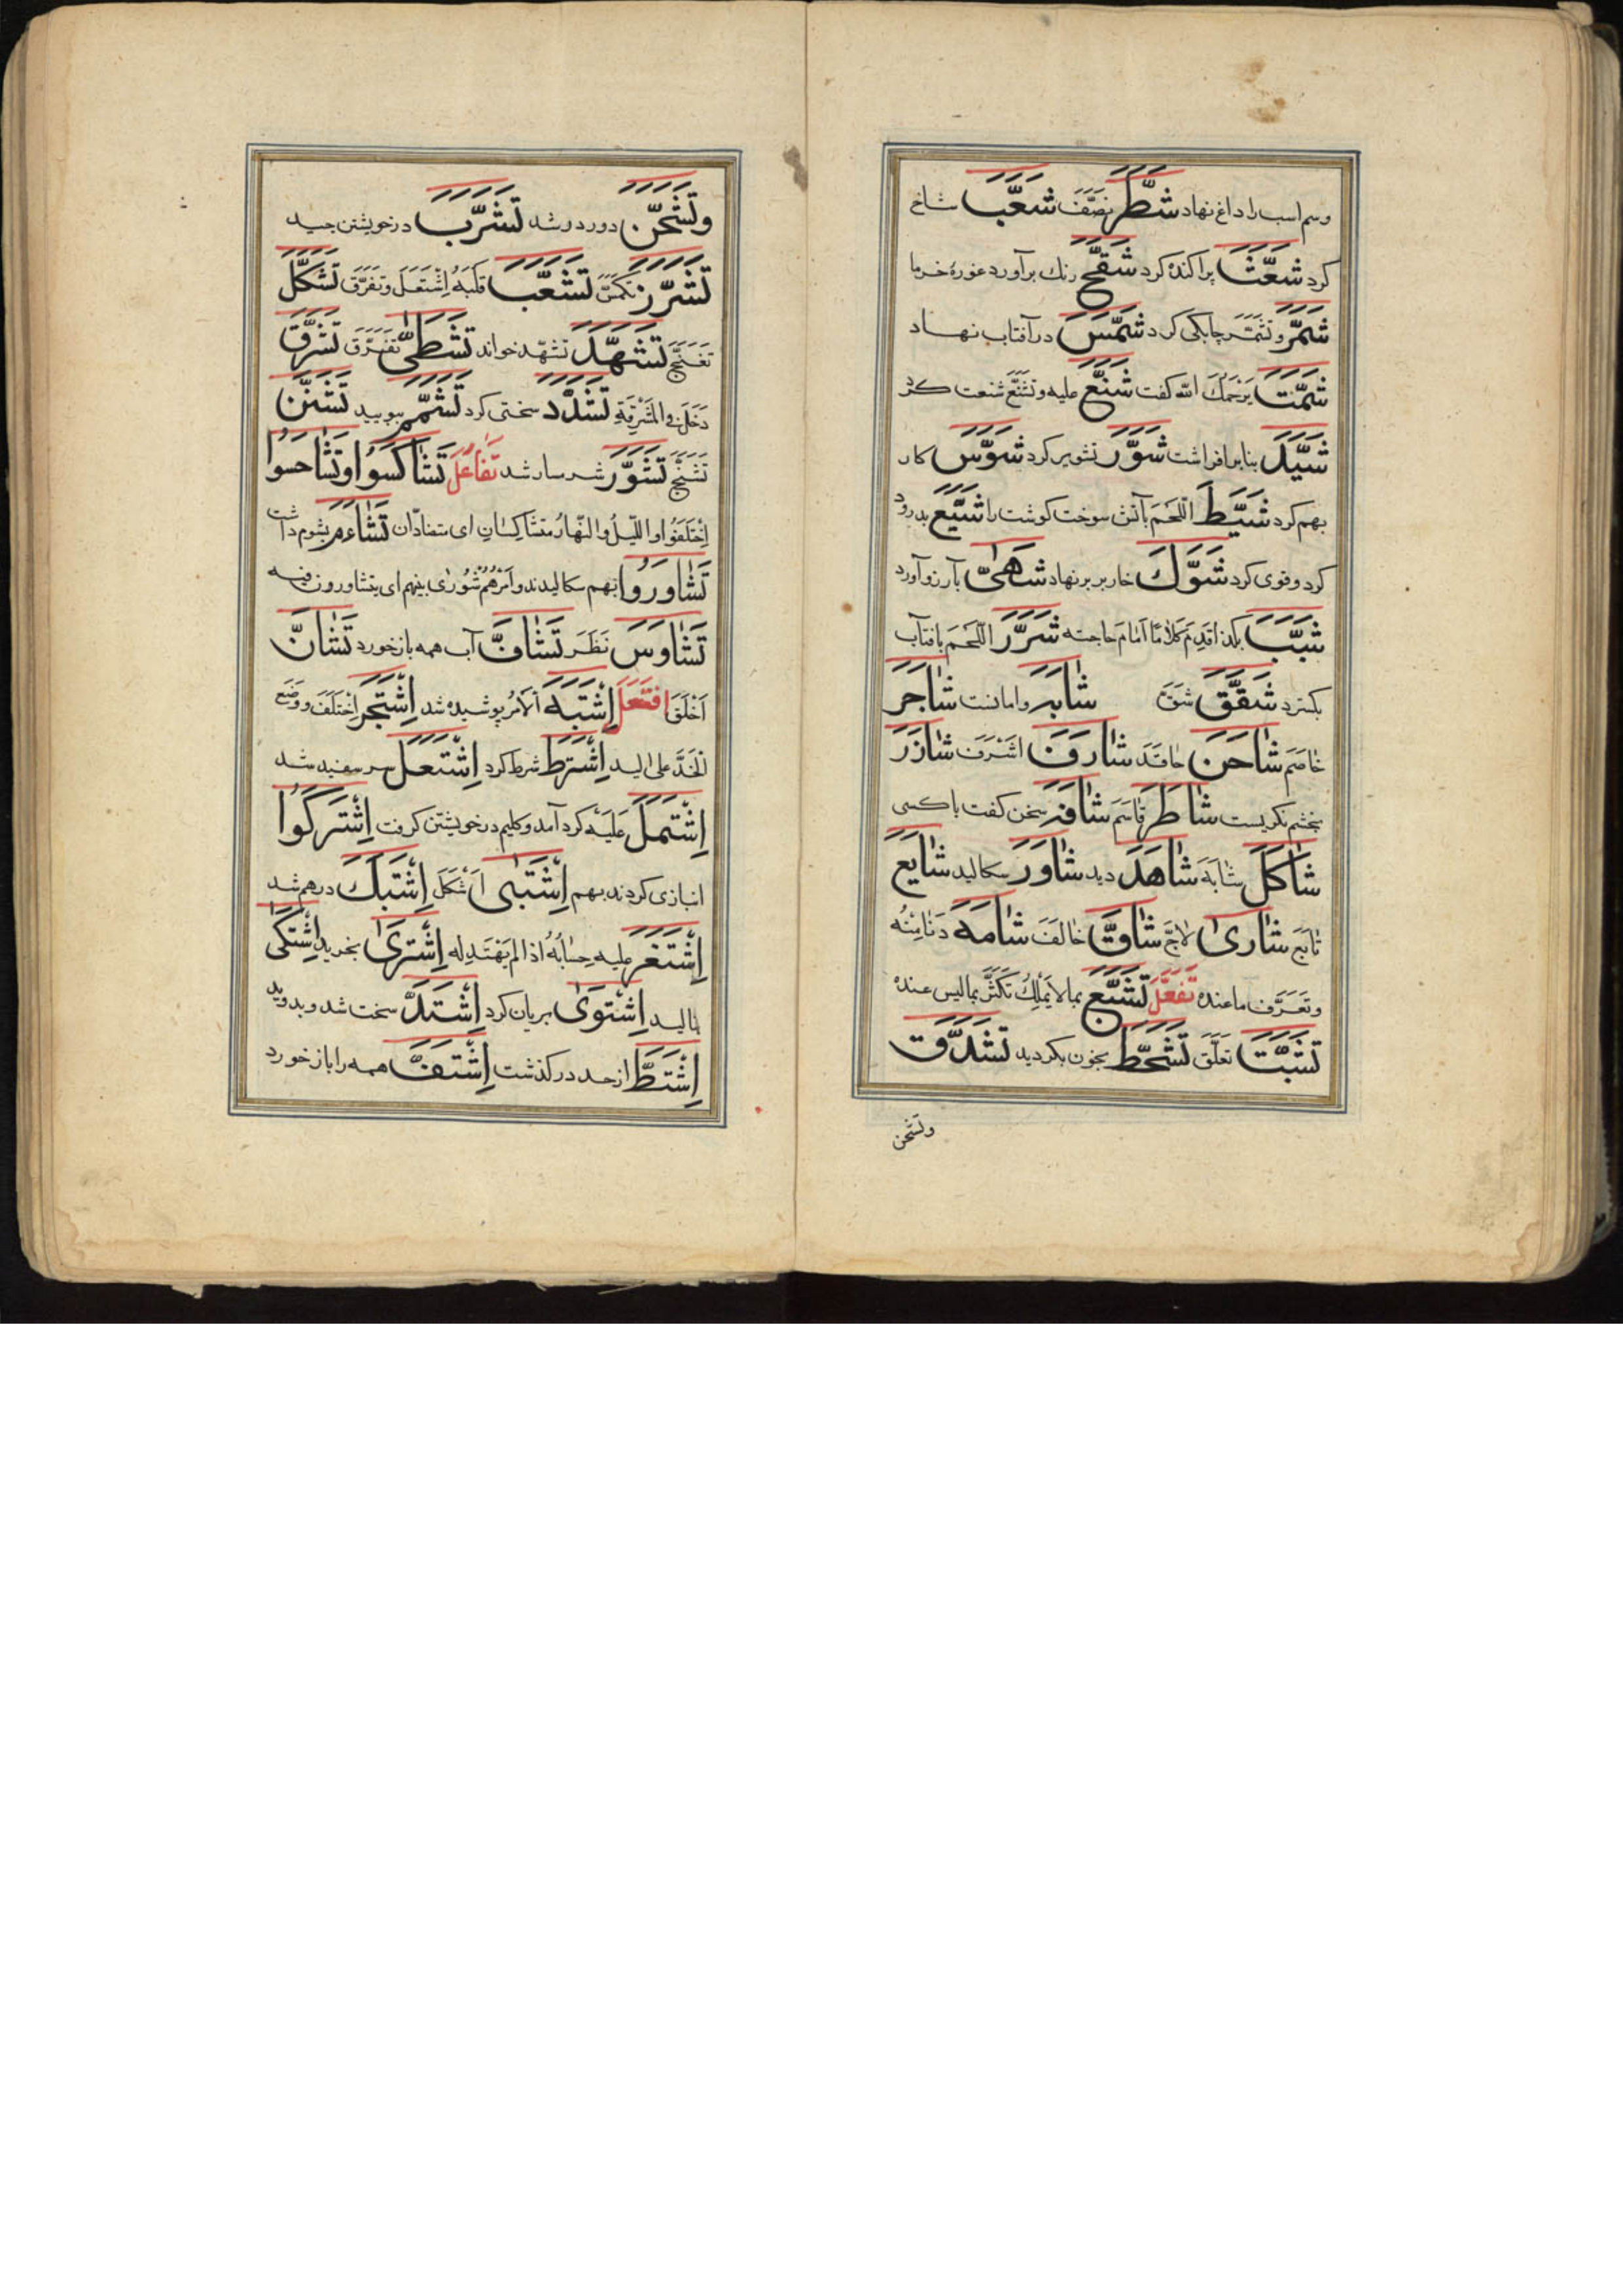 وسم اسب را داغ نهاد شَطَّرَ نصَّفَ شَعَّبَ شاخ
کرد شَعَّثَ پراکنده کرد شَقَّحَ رنك برآورد غورهٔ خرما
شَمَّرَ و تشمَّر چابکی کرد شَمَّسَ در آفتاب نهاد
شَمَّتَ یرحمك الله کفت شَنَّعَ علیه و تشنَّع شنعت کرد
شَیَّدَ بنا برافراشت شَوَّرَ تشویر کرد شَوَّشَ کار
بهم کرد شَیَّطَ اللَّحمَ بآتش سوخت کوشت را شَیَّعَ بدرود
کرد و قوی کرد شَوَّكَ خار بر بر نهاد شَهّیٰ بآرزو آورد
شَبَّبَ بکذا قدَّم کلامًا اَمام حاجته شَرَّرَ اللَّحمَ بافتاب
بکسترد شَقَّقَ شَقَّ شابَهَ وامانست شاجَرَ
خاصَم شاحَنَ حاقَدَ شارَفَ اشرَفَ شازَرَ
بخشم نکریست شاطَرَ قاسَمَ شافَهَ سخن کفت با کسی
شاکَلَ شابَهَ شاهَدَ دید شاوَرَ سکالید شایَعَ
تابَعَ شاریٰ لاجَّ شاقَّ خالَفَ شامَّهُ دَنا مِنْهُ
و تعرَّف ما عنده تَفَعَّلَ تَشَبَّعَ بما لا یملكُ تکثَّرَ بما لیس عنده
تَشَبَّثَ تعلَّقَ تَشَحَّطَ بخون بکردید تَشَدَّقَ
وتشحن
وتَشَحَّنَ دور در شد تَشَرَّبَ در خویشتن چید
تَشَزَّنَ تَشَعَّبَ قلبَهُ اِشتَعَلَ و تفرَّقَ تَشَکَّلَ
تغنَّج تَشَهَّدَ تشهّد خواند تَشَظّیٰ تفرَّقَ تَشَرَّقَ
دَخَلَ فی المَشرقةِ تَشَدَّدَ سختی کرد تَشَمَّمَ ببویید تَشَنَّنَ
تَشَنَّجَ تَشَوَّرَ شرمسار شد تَفاعُل تَشاکَسُوا وتَشاحَسوا
اِختَلَفُوا و اللَّیلُ والنّهارُ متشاکسانِ ای متضادّان تَشاءَمَ بشوم داشت
تَشاوَرُوا بهم سکالیدند و اَمرُهُم شُوریٰ بینهم ای یتشاورون فیه
تَشاوَسَ نَظَرَ تَشافَّ آب همه باز خورد تَشانَّ
اَخلَقَ اِفتَعَلَ اِشتَبَهَ الامرُ پوشیده شد اِشتَجَرَ اختلَفَ و وضَع
الخَدَّ علی الید اِشتَرَطَ شرط کرد اِشتَعَلَ سر سفید شد
اِشتَمَلَ عَلَیهِ کرد آمد و کلیم در خویشتن کرفت اِشتَرَکُوا
انبازی کردند بهم اَشکَلَ اِشتَبَكَ درهم شد
اِشتَغَرَ علیه حِسابُهُ اذا لم یَهتَدِ له اِشتَریٰ بخرید اِشتَکیٰ
بنالید اِشتَویٰ بریان کرد اِشتَدَّ سخت شد و بدوید
اِشتَطَّ از حد در کذشت اِشتَفَّ همه را باز خورد